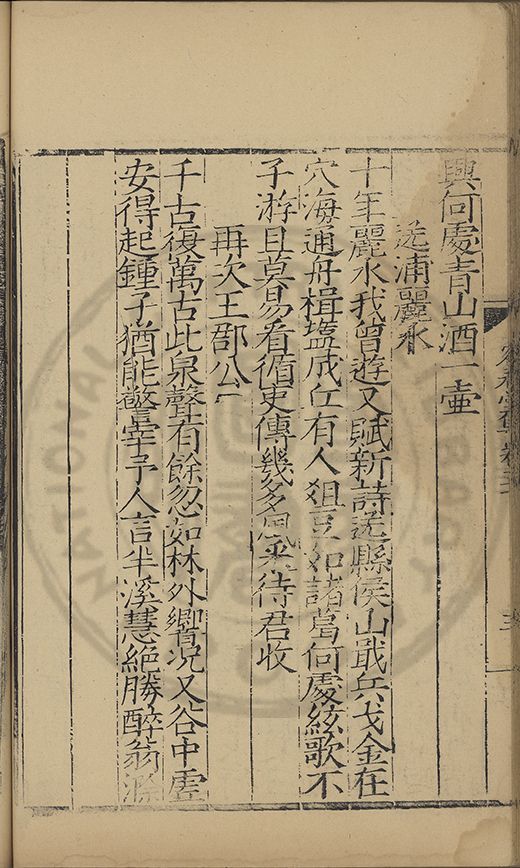 興何處青山酒一壷
送浦麗水
十年麗水我曾遊又賦新詩送縣侯山戢兵戈金在
穴海通舟楫塩成丘有人俎豆如諸葛何處絃歌不
子游且莫易看循吏傳幾多風采待君收
再次王郃公
千古復萬古此泉聲有餘忽如林外響况又谷中虛
安得起鍾子猶能警宰予人言半溪慧絶勝醉翁滁